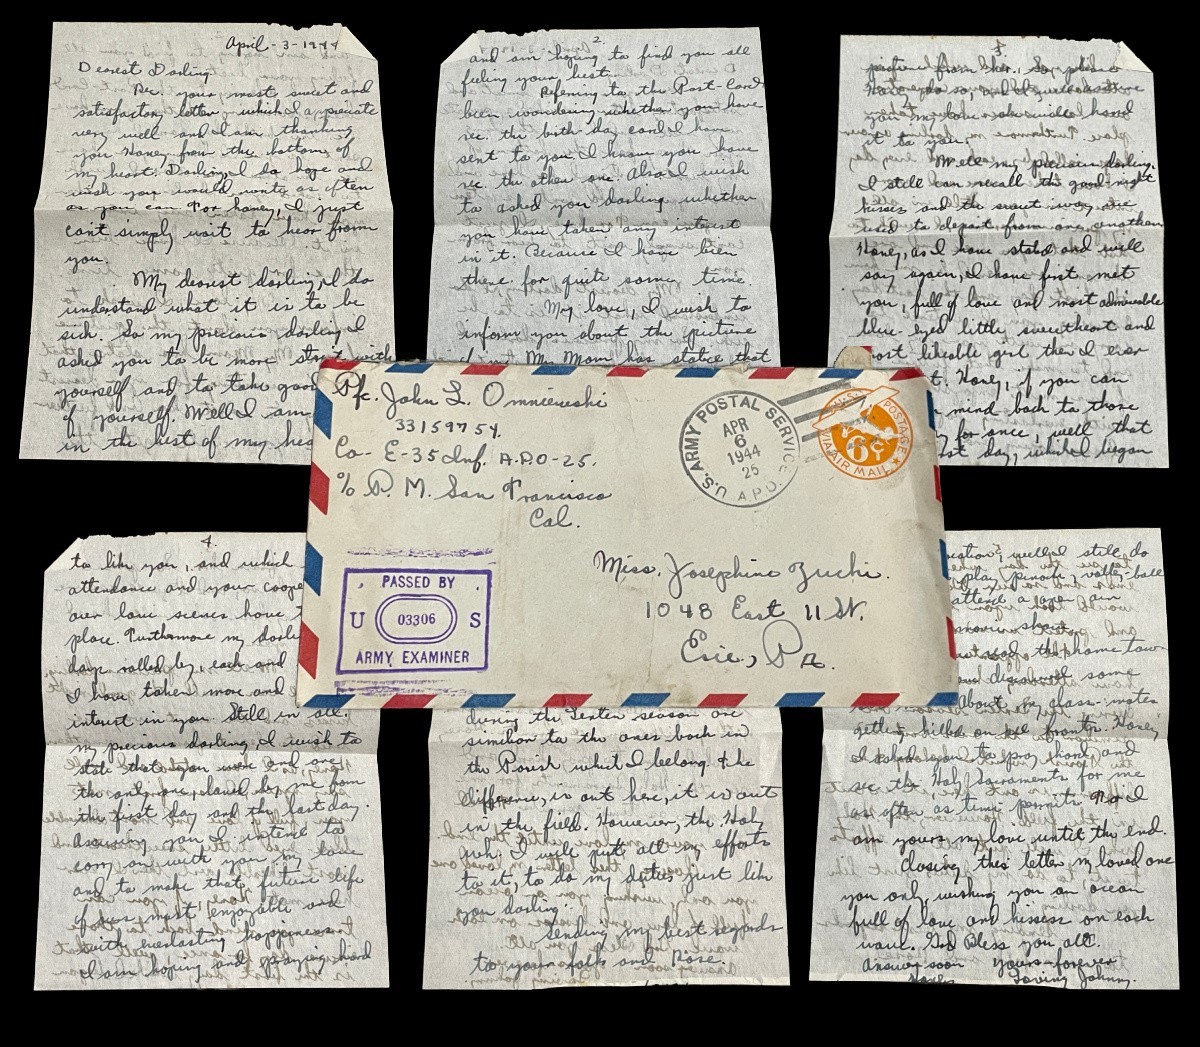 April-3-1944
Dearest Darling.
Rec. your most sweet and
satisfactory letter which I appreciate
very well and I am thanking
you Honey from the bottom of
my heart. Darling, I do hope and
wish you would write as often
as you can. For honey, I just
can't simply wait to hear from
you.
My dearest darling, I do
understand what it is to be
sick. So my precious darling I
asked you to be more strict with
yourself and to take good
of yourself. Well I am
in the best of my hea
2.
and am hoping to find you all
feeling your best.
Refering to the Post-Card
been wondering whether you have
rec. the birth day card I have
sent to you. I know you have
rec. the other one. Also, I wish
to asked you darling whether
you have taken any interest
in it. Because I have been
there for quite some time.
My love, I wish to
inform you about the picture
My Mom has stated that
3.
from her. So please
do so, and I
you
it to you.
Well my precious darling.
I still can recall the good-night
kisses and the sweet way we
used to depart from one another
Honey, as I have stated and will
say again, I have first met
you, full of love and most admireable
blue-eyed little sweetheart and
most likeable girl then I ever
t. Honey, if you can
mind back to those
for once, well that
st day, which I began
4.
to like you, and which
attendance and your coope
our love scenes have t
place. Furthermore my darli
days rolled by, each and
I have taken more and
interest in you. Still in all.
my precious darling, I wish to
state that you were and are
the only one, loved by me from
the first day and the last day.
Assuring you I intend to
carry on with you my love
and to make that future life
of ours most enjoyable and
with everlasting happiness.
I am hoping and praying hard
during the Lenten season are
similior to the ones back in
the Parish which I belong. The
difference, is out here, it is out
in the field. However, the Holy
Week I will put all my efforts
to it to do my duties just like
you darling.
Sending my best regards
to your folks and Rose.
uestion, well I still do
play pinocle, volley-ball
attend a open air
movie show.
read the home town
and discovered some
About my class-mates
getting killed on the fronts. Honey
I asked you to pray hard and
rec. the Holy Sacraments for me
as often as time permits. For I
am yours my love until the end.
Closing this letter, my loved one
you only, wishing you an ocean
full of love and kissess on each
wave. God Bless you all.
Answer soon yours-forever
Honey Loving Johnny.
Pfc. John L. Omniewski
33159754.
Co-E-35 Inf. A.P.O-25.
c/o P.M. San Francisco
Cal.
U.S. ARMY POSTAL SERVICE
APR
6
1944
25
A.P.O.
U.S. POSTAGE
6¢
VIA AIR MAIL
PASSED BY
U 03306 S
ARMY EXAMINER
Miss. Josephine Zuchi.
1048 East 11 St.
Erie, Pa.